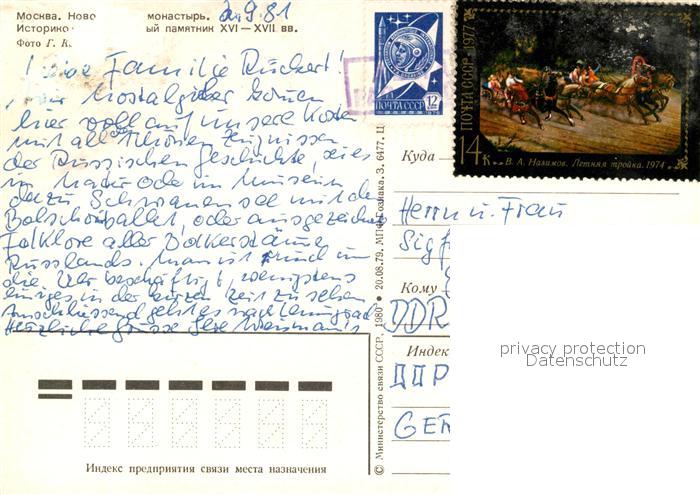 Москва. Ново монастырь. 2.9.81
Историко- ый памятник XVI—XVII вв.
Фото Г. К
Liebe Familie Rückert!
Wir Nostalgiker können
hier voll auf unsere Kosten
mit all schönen Zeugnissen
der Russischen Geschichte, sei es
in Natur oder im Museum
dazu Schwanensee mit dem
Bolschoiballet oder ausgezeichnete
Folklore aller Völkerstämme
Russlands. Man ist rund um
die Uhr beschäftigt, wenigstens
einiges in der kurzen Zeit zu sehen
Anschliessend geht es nach Leningrad
Herzliche Grüsse Ihre
12
ПОЧТА СССР
ПОЧТА СССР · 1977
14 к
В. А. Назимов. Летняя тройка. 1974
Куда
Herrn u. Frau
Sig
Кому
DDR
Индек
ДДР
GER
© Министерство связи СССР, 1980 • 20.08.79. МПФ Гознака. З. 6477. Ц
Индекс предприятия связи места назначения
privacy protection
Datenschutz